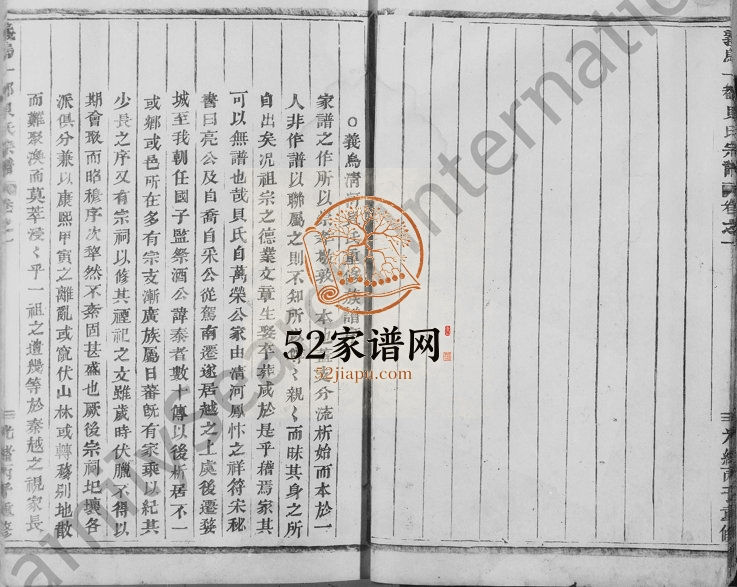 義烏一都貝氏宗譜 卷之一
光緒丙子重修
○義烏清河貝氏重修族譜
家譜之作所以 分流析始而本於一
人非作譜以聯屬之則不知所 親〻而昧其身之所
自出矣況祖宗之德業文章生娶卒葬咸於是乎稽焉家其
可以無譜也哉貝氏自萬榮公家由清河厥忭之祥符宋秘
書曰亮公及自喬自采公從駕南遷遂居越之上虞後遷婺
城至我朝任國子監祭酒公諱泰者數十傳以後析居不一
或鄉或邑所在多有宗支漸廣族屬日蕃旣有宗乘以紀其
少長之序又有宗祠以修其禋祀之文雖歲時伏臘不得以
期會聚而昭穆序次犂然不紊固甚盛也厥後宗祠圯壞各
派俱分兼以康熙甲寅之離亂或竄伏山林或轉移別地散
而難聚渙而莫萃浸〻乎一祖之遺幾等於秦越之視家長
義烏一都貝氏宗譜 卷之一
光緒丙子重修
52家谱网
52jiapu.com
FamilySearch International